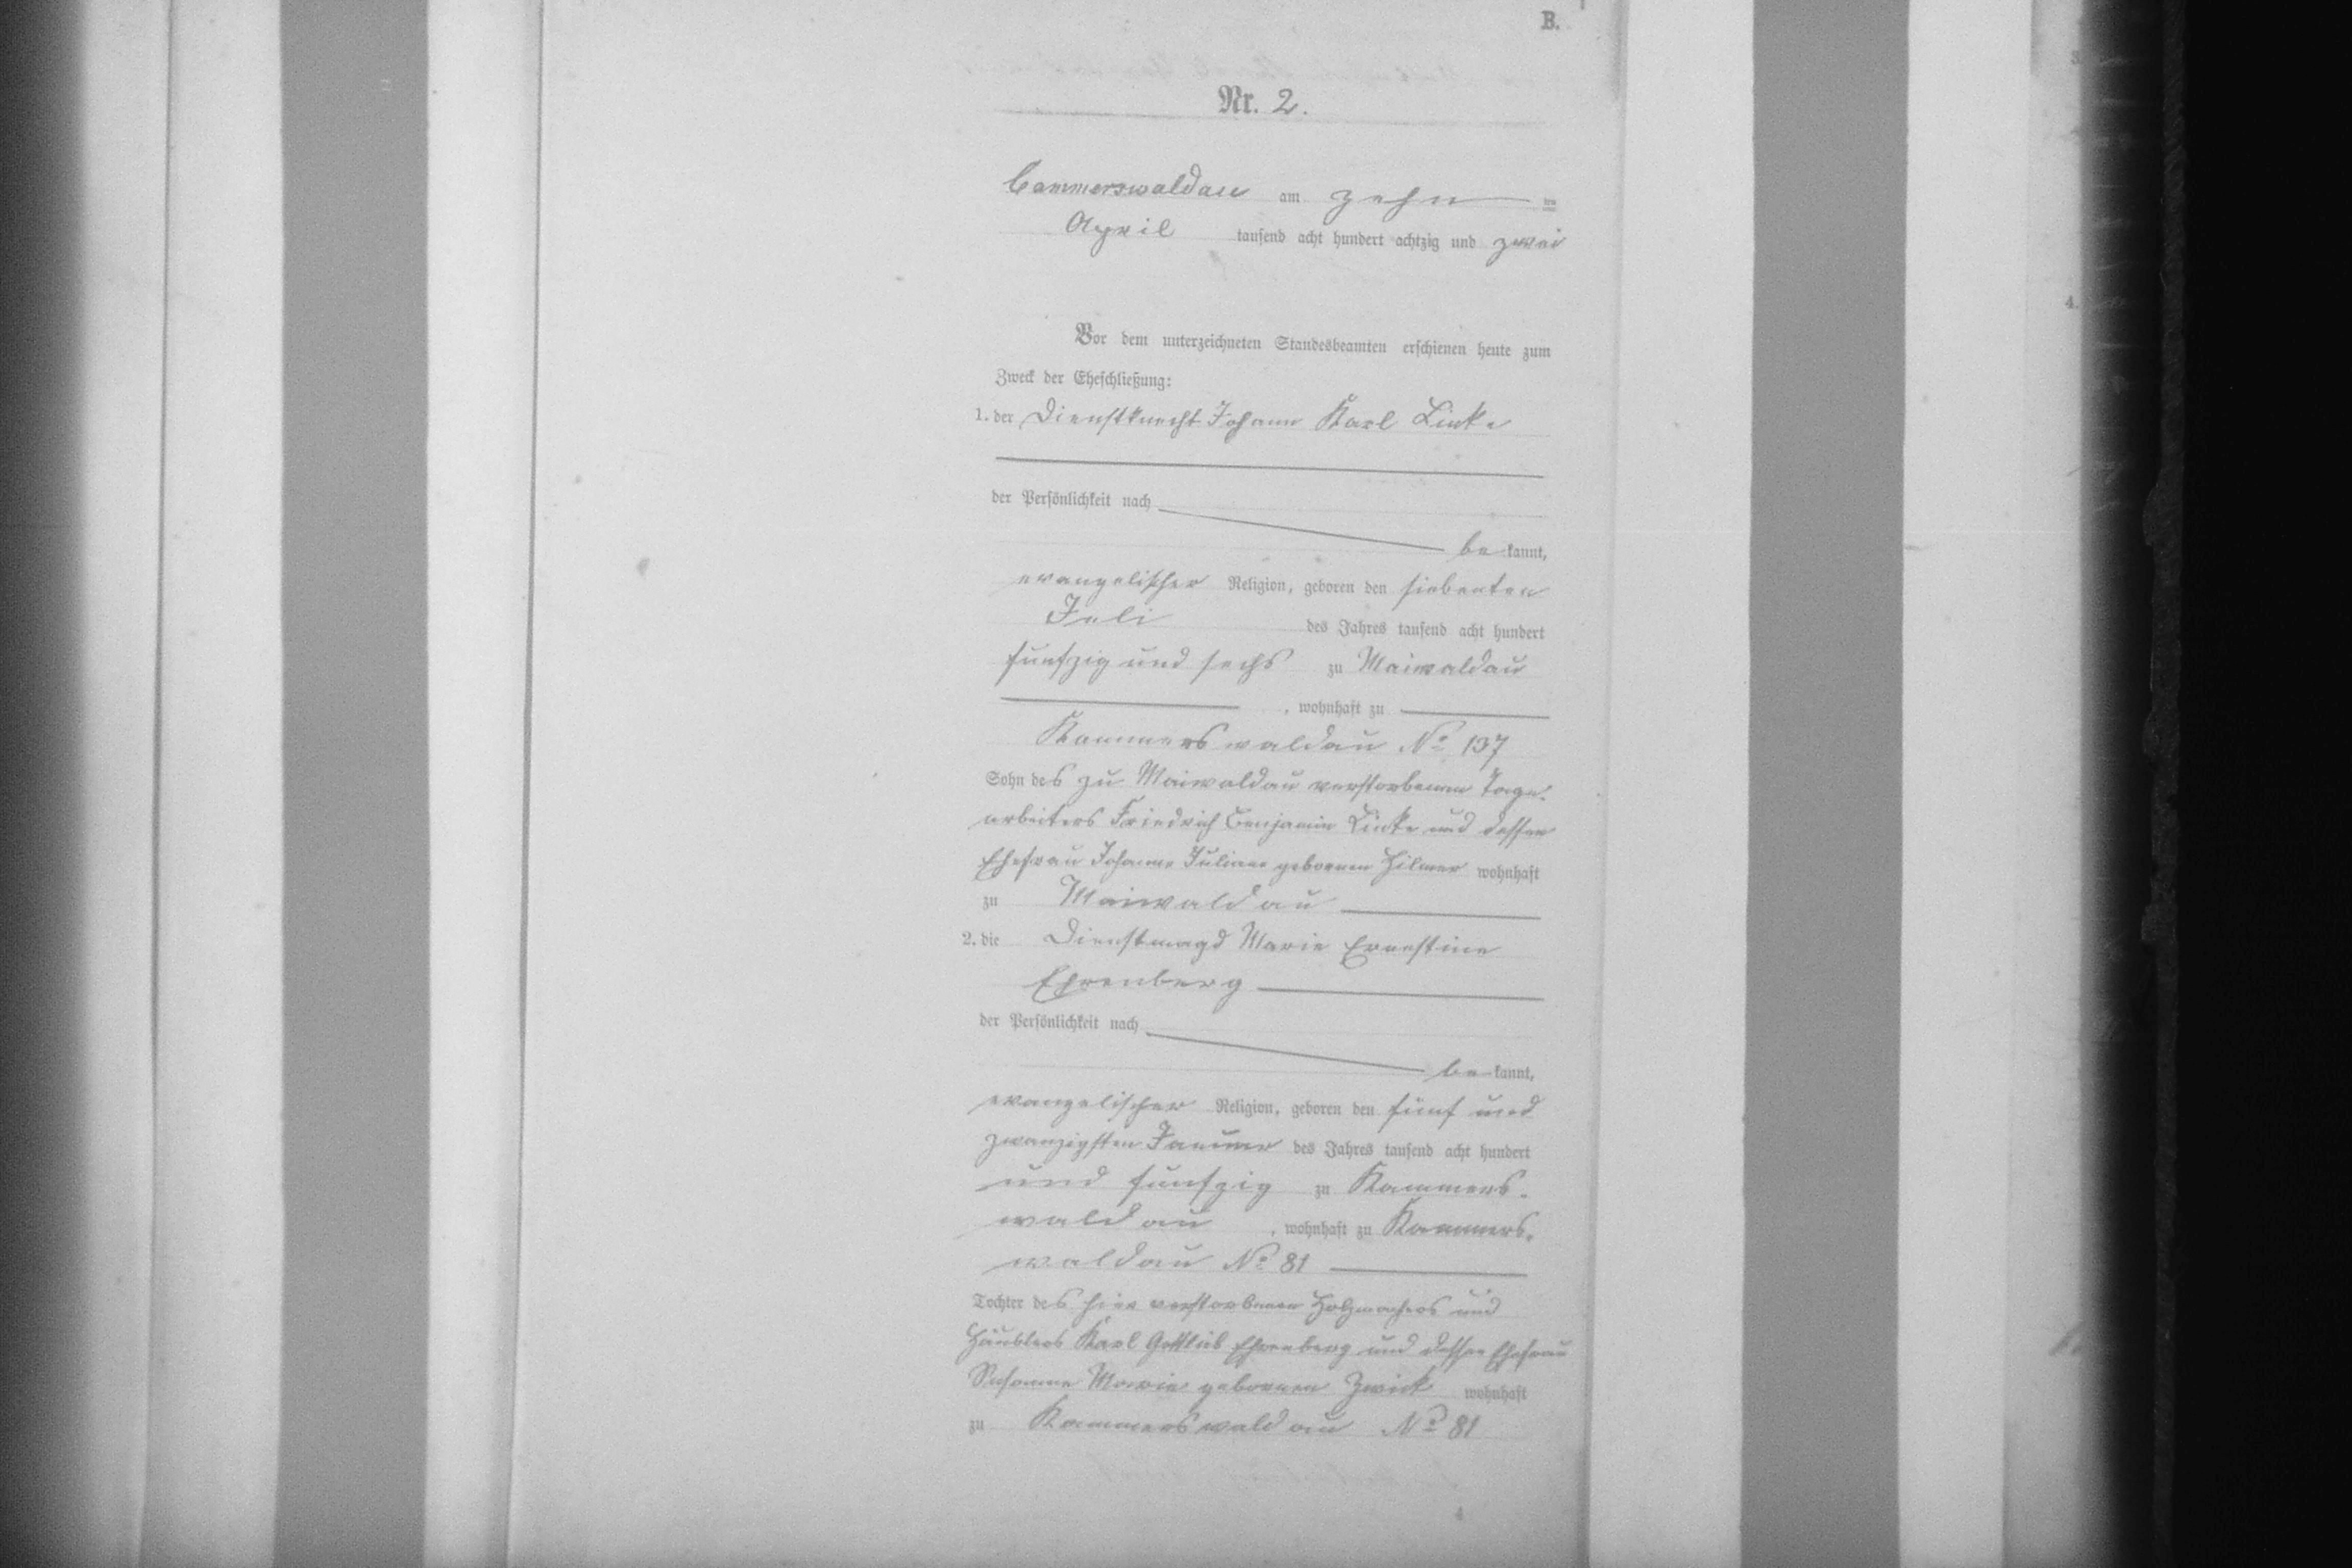 B.
Nr. 2.
Cammerswaldau am zehn ten
April tausend acht hundert achtzig und zwei
Vor dem unterzeichneten Standesbeamten erschienen heute zum
Zweck der Eheschließung:
1. der Dienstknecht Johann Karl Linke
der Persönlichkeit nach
be kannt,
evangelischer Religion, geboren den siebenten
Juli des Jahres tausend acht hundert
fünfzig und sechs zu Maiwaldau
, wohnhaft zu
Kammerswaldau No 137
Sohn des zu Maiwaldau verstorbenen Tage-
arbeiters Friedrich Benjamin Linke und dessen
Ehefrau Johanne Juliane gebornen Hilmer wohnhaft
zu Maiwaldau
2. die Dienstmagd Marie Ernestine
Ehrenberg
der Persönlichkeit nach
be kannt,
evangelischer Religion, geboren den fünf und
zwanzigsten Januar des Jahres tausend acht hundert
und fünfzig zu Kammers-
waldau , wohnhaft zu Kammers-
waldau No 81
Tochter des hier verstorbenen Holzmachers und
Häuslers Karl Gottlieb Ehrenberg und dessen Ehefrau
Susanne Marie gebornen Zwick wohnhaft
zu Kammerswaldau No 81
4